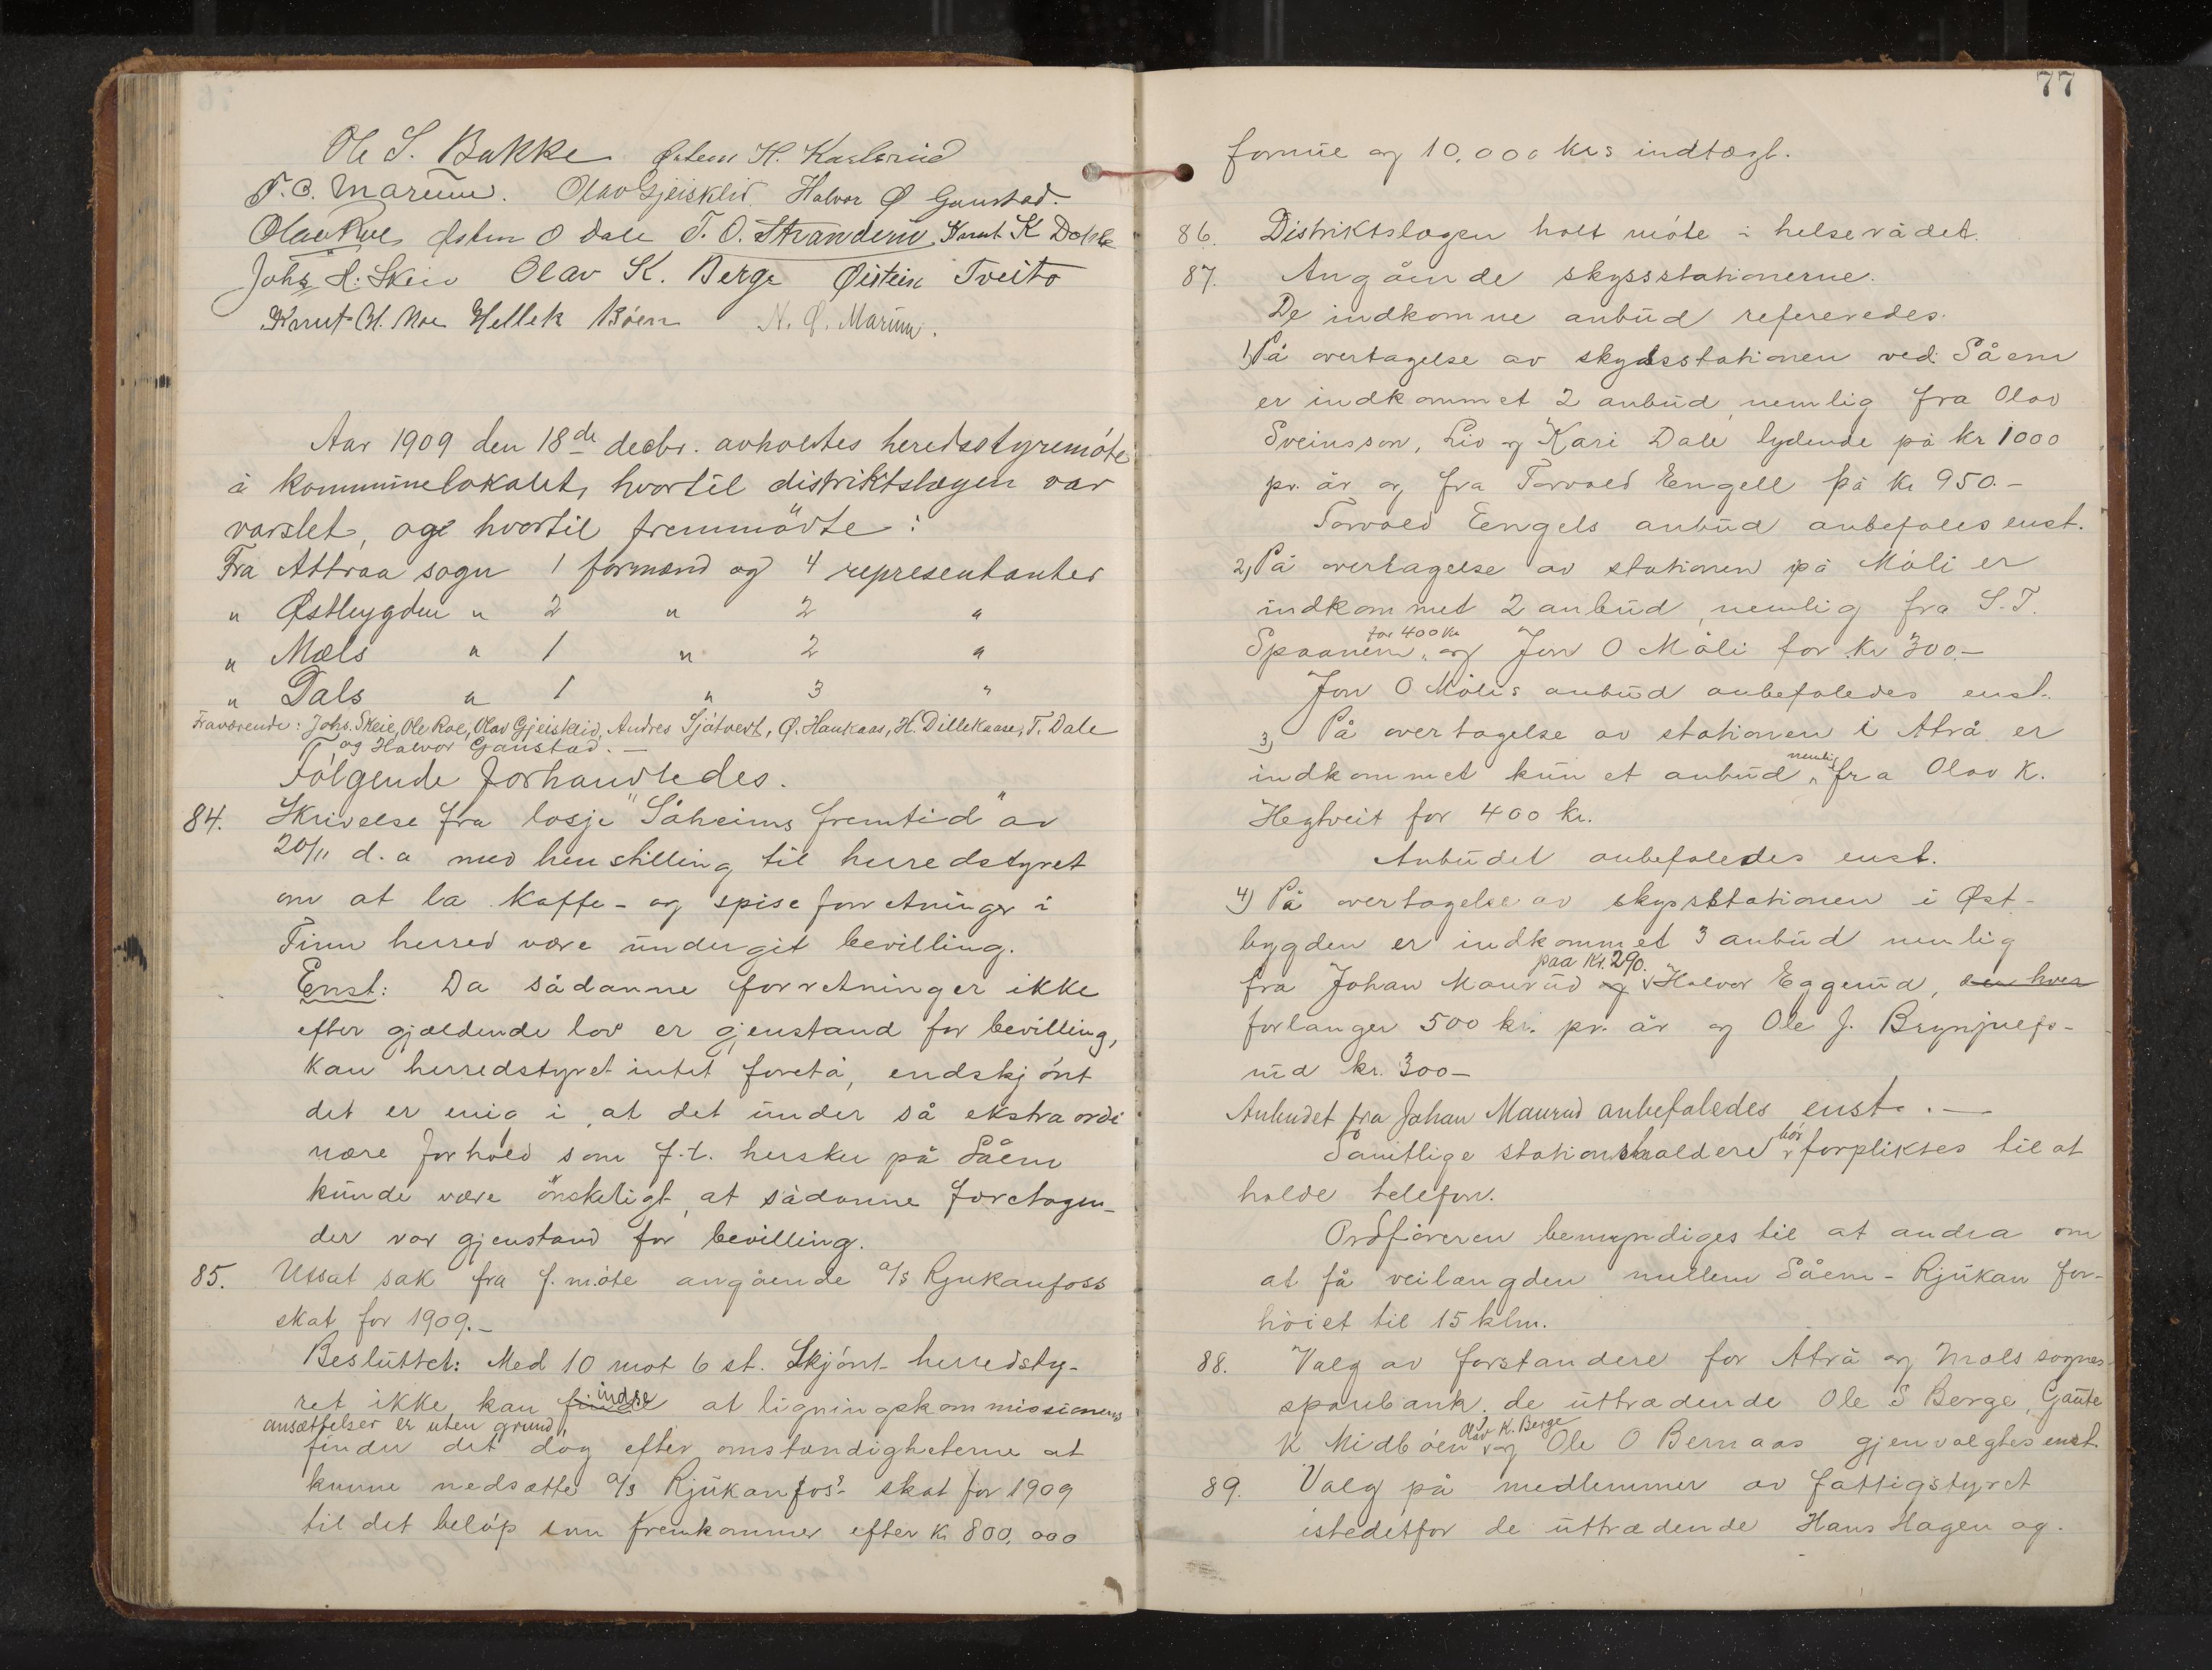 Ole S. Bakke Østen H. Kaslsrud
T. C. Marum. Olav Gjeisklid. Halvor Ø Gaustad.
Olav Roe Østen O Dale T. O. Stranderu, Knut K Dokk
Johs H. Skeie Olav K. Berge Øistein Tveito
Knut H. Moe Hellek Bóen N. Ø. Marum.
Aar 1909 den 18de decbr. avholdtes heredsstyremóte
i kommunelokalet, hvortil distriktslægen var
varslet, og hvortil fremmödte:
Fra Attraa sogn 1 formand og 4 representanter
" Østbygden " 2 " 2 "
" Mæls " 1 " 2 "
" Dals " 1 " 3 "
Fraværende: Johs. Skeie, Ole Roe, Olav Gjeisklid, Andres Sjåtveit, Ø. Haukaas, H. Dillekaase, T. Dale
og Halvor Gaustad. —
Fólgende forhandledes.
84. Skrivelse fra losje "Såheims fremtid" av
20/11 d. a med henstilling til herredstyret
om at la kaffe- og spiseforretninger i
Tinn herred være undergit bevilling.
Enst: Da sådanne forretninger ikke
efter gjældende lov er gjenstand for bevilling,
kan herredstyret intet foretå, endskjónt
det er enig i, at det under så ekstraordi
nære forhold som f. t. hersker på Såem
kunde være ónskeligt, at sådanne foretagen-
der var gjenstand for bevilling.
85. Utsat sak fra f. móte angående a/s Rjukanfoss
skat for 1909.—
Besluttet: Med 10 mot 6 st. Skjónt herredsty-
ret ikke kan finde indse at ligningskommissionens
ansættelser er uten grund,
finder det dog efter omstændigheterne at
kunne nedsætte a/s Rjukanfos' skat for 1909
til det belóp som fremkommer efter kr 800,000
77
formue og 10,000 krs indtægt.
86. Distriktslægen holt móte i helserådet.
87. Angående skyssstationerne.
De indkomne anbud refereredes.
1) På overtagelse av skydsstationen ved Såem
er indkommet 2 anbud, nemlig fra Olav
Sveinsson, Liv og Kari Dale lydende på kr 1000
pr. år og fra Torvald Engell på kr 950.—
Torvald Eengels anbud anbefales enst.
2) På overtagelse av stationen på Móli er
indkommet 2 anbud, nemlig fra S. T.
for 400 kr
Spaanem, og Jon O Móli for kr 300.—
Jon O Mólis anbud anbefaledes enst.
3) På overtagelse av stationen i Atrå er
indkommet kun et anbud nemlig fra Olav K.
Hegtveit for 400 kr.
Anbudet anbefaledes enst.
4) På overtagelse av skyssstationen i Øst-
bygden er indkommet 3 anbud nemlig
paa Kr. 290.
fra Johan Maurud og Halvor Eggerud, som hver
forlanger 500 kr. pr. år og Ole J. Brynjulfs-
rud kr. 300—
Anbudet fra Johan Maurud anbefaledes enst. —
Samtlige stationsholdere bór forpliktes til at
holde telefon.
Ordfóreren bemyndiges til at andra om
at få veilængden mellem Såem - Rjukan for-
hóiet til 15 klm.
88. Valg av forstandere for Atrå og Mæls sognes
sparebank. de uttrædende Ole S Berge, Gaute
Olav K. Berge
K Midbóen og Ole O Bernaas gjenvalgtes enst.
89. Valg på medlemmer av fattigstyret
istedetfor de uttrædende Hans Hagen og